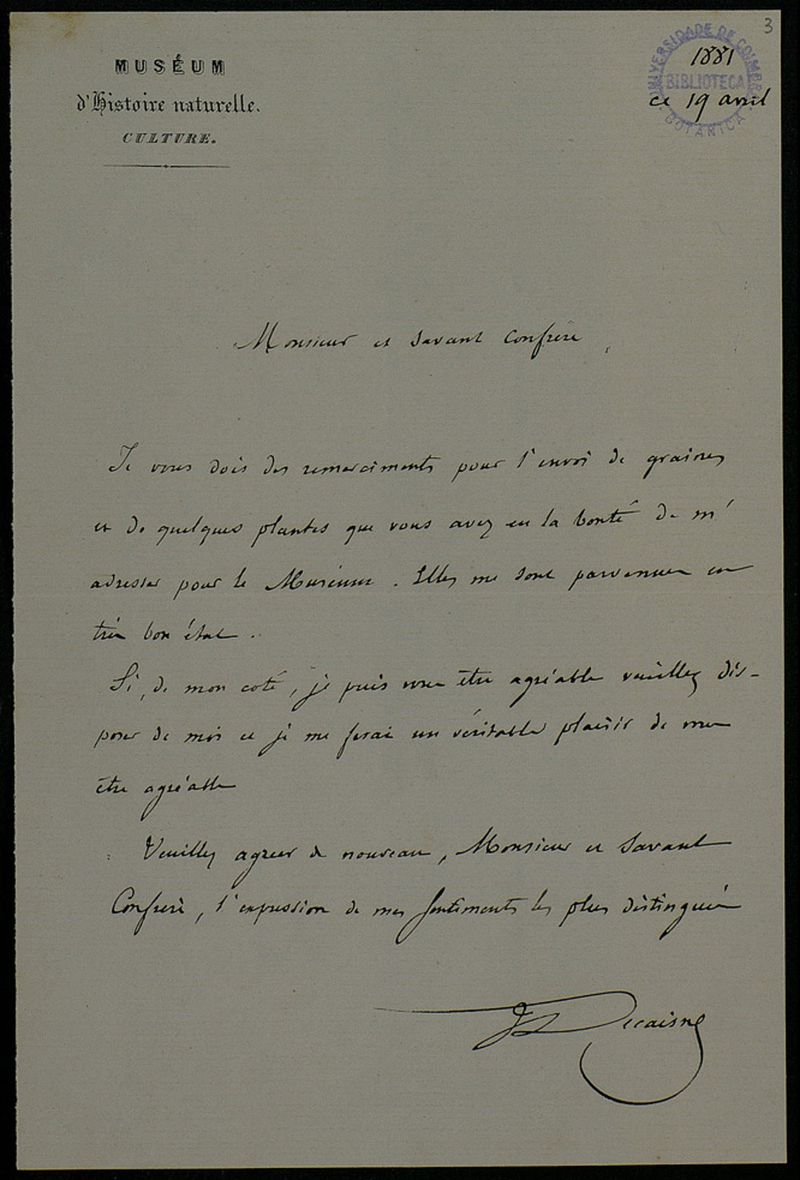 3
MUSÉUM
d'Histoire naturelle.
CULTURE.
UNIVERSIDADE DE COIMBRA
BIBLIOTECA
BOTANICA
1881
ce 19 avril
Monsieur et Savant Confrère,
Je vous dois des remerciments pour l'envoi de graines
et de quelques plantes que vous avez eu la bonté de m'
adresser pour le Muséum. Elles me sont parvenues en
très bon état.
Si, de mon coté, je puis vous être agréable veuillez dis-
poser de moi et je me ferai un véritable plaisir de vous
être agréable
Veuillez agréer de nouveau, Monsieur et Savant
Confrère, l'expression de mes sentiments les plus distingués
J Decaisne